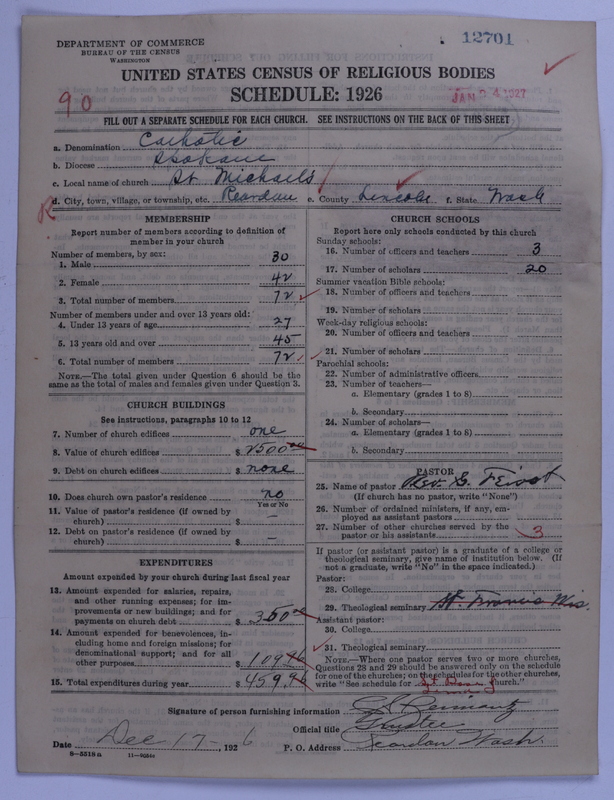 DEPARTMENT OF COMMERCE
BUREAU OF THE CENSUS
WASHINGTON
12701
UNITED STATES CENSUS OF RELIGIOUS BODIES
SCHEDULE: 1926
90
JAN 24 1927
FILL OUT A SEPARATE SCHEDULE FOR EACH CHURCH. SEE INSTRUCTIONS ON THE BACK OF THIS SHEET
a. Denomination Catholic
b. Diocese Spokane
c. Local name of church St Michaels
d. City, town, village, or township, etc. Reardan e. County Lincoln f. State Wash
R
MEMBERSHIP
Report number of members according to definition of
member in your church
Number of members, by sex:
1. Male 30
2. Female 42
3. Total number of members 72
Number of members under and over 13 years old:
4. Under 13 years of age 27
5. 13 years old and over 45
6. Total number of members 72
NOTE.—The total given under Question 6 should be
same as the total of males and females given under Question 3.
CHURCH BUILDINGS
See instructions, paragraphs 10 to 12
7. Number of church edifices one
8. Value of church edifices $ 2500 00
9. Debt on church edifices $ none
10. Does church own pastor's residence no
Yes or No
11. Value of pastor's residence (if owned by
church) $ —
12. Debt on pastor's residence (if owned by
church) $ —
EXPENDITURES
Amount expended by your church during last fiscal year
13. Amount expended for salaries, repairs,
and other running expenses; for im-
provements or new buildings; and for
payments on church debt $ 350 00
14. Amount expended for benevolences, in-
cluding home and foreign missions; for
denominational support; and for all
other purposes $ 109 96
15. Total expenditures during year $ 459.96
CHURCH SCHOOLS
Report here only schools conducted by this church
Sunday schools:
16. Number of officers and teachers 3
17. Number of scholars 20
Summer vacation Bible schools:
18. Number of officers and teachers
19. Number of scholars
Week-day religious schools:
20. Number of officers and teachers
21. Number of scholars
Parochial schools:
22. Number of administrative officers
23. Number of teachers—
a. Elementary (grades 1 to 8)
b. Secondary
24. Number of scholars—
a. Elementary (grades 1 to 8)
b. Secondary
PASTOR
25. Name of pastor Rev. G. Feist
(If church has no pastor, write "None")
26. Number of ordained ministers, if any, em-
ployed as assistant pastors
27. Number of other churches served by the
pastor or his assistants 3
If pastor (or assistant pastor) is a graduate of a college or
theological seminary, give name of institution below. (If
not a graduate, write "No" in the space indicated.)
Pastor:
28. College
29. Theological seminary St. Francis Wis.
Assistant pastor:
30. College
31. Theological seminary
NOTE.—Where one pastor serves two or more churches,
Questions 28 and 29 should be answered only on the schedule
for one of the churches; on the schedules for the other churches,
write "See schedule for church."
Signature of person furnishing information
Official title Trustee
Date Dec 17 -, 1926 P. O. Address Reardan Wash.
8—5518 a